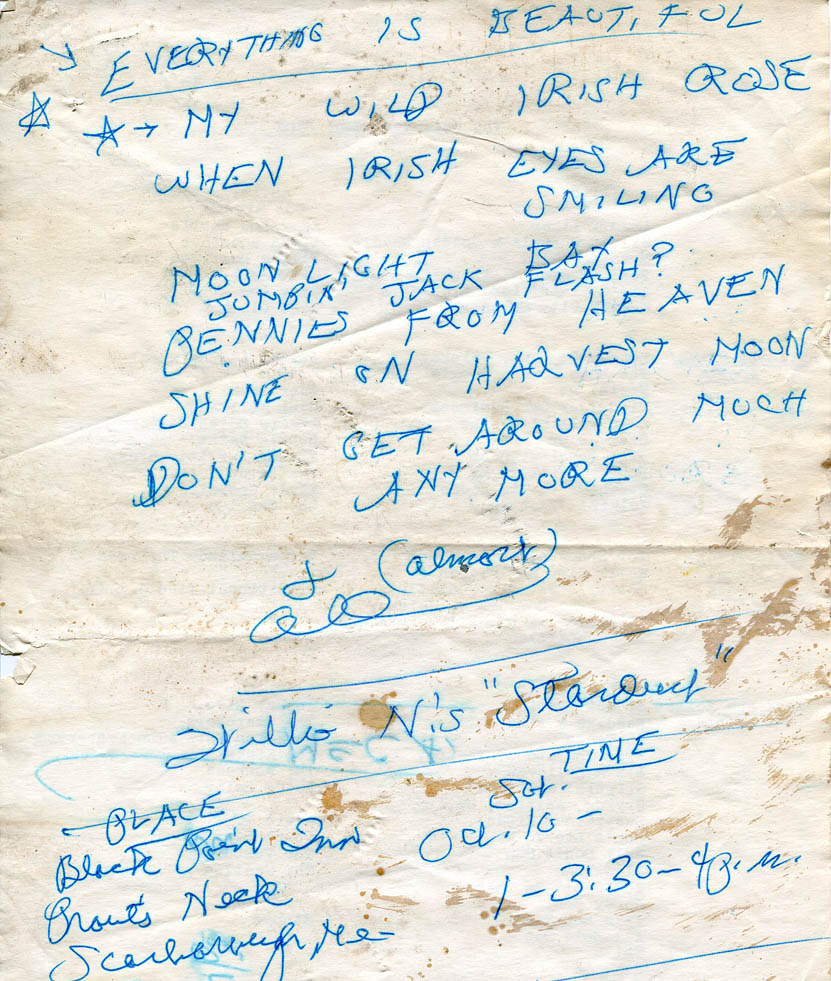 EVERYTHING IS BEAUTIFUL
MY WILD IRISH ROSE
WHEN IRISH EYES ARE
SMILING
MOONLIGHT BAY
JUMPIN' JACK FLASH?
PENNIES FROM HEAVEN
SHINE ON HARVEST MOON
DON'T GET AROUND MUCH
ANY MORE
(almost)
all
Willie N.'s "Stardust"
PLACE
TIME
Black Point Inn
Sat.
Oct. 10 -
Prouts Neck
1 - 3:30 - 4 p.m.
Scarborough, Me -